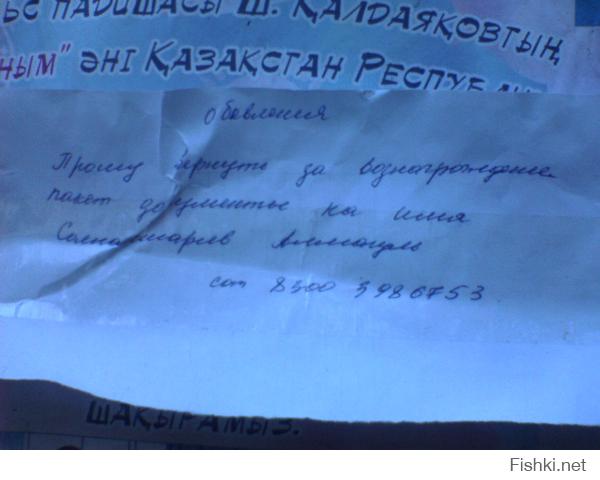 ЬС ПАДИШАСЫ Ш. ҚАЛДАЯҚОВТЫҢ
НЫМ" ӘНІ ҚАЗАҚСТАН РЕСПУБ
Обявления
Прошу вернуть за вознаграждение
пакет документы на имя
сот 8300 3986753
ШАҚЫРАМЫЗ.
Fishki.net